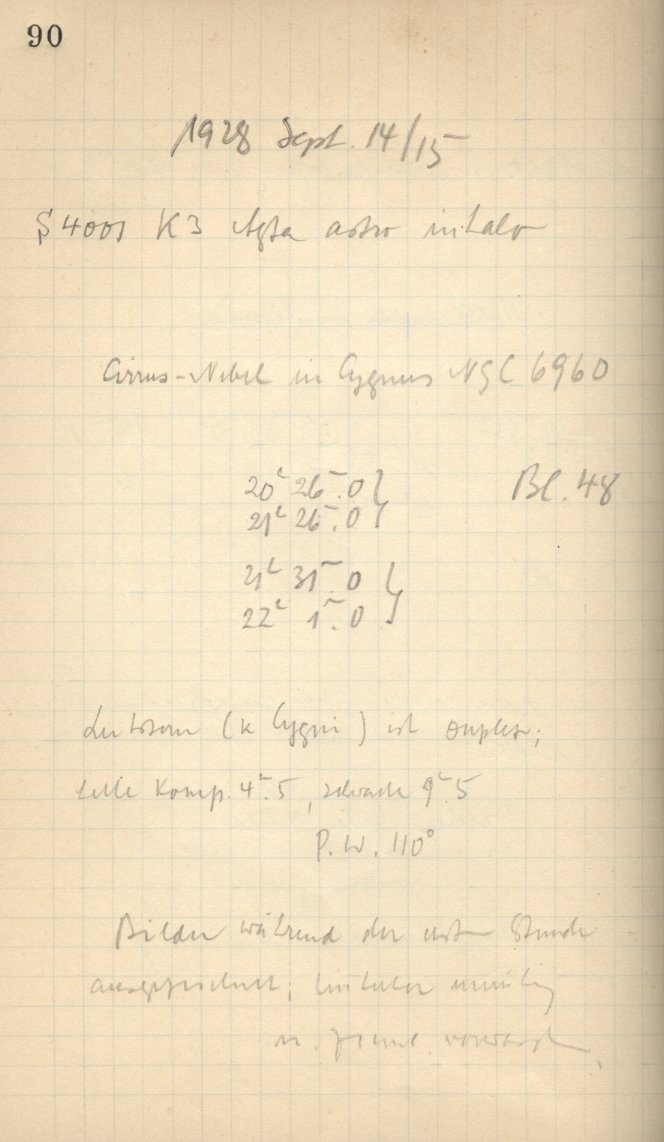 90
1928 Sept. 14/15
S 4001 K3 Agfa astro inhalo
Cirrus-Nebel in Cygnus NGC 6960
20ʰ 26ᵐ.0 } Bl. 48
21ʰ 26ᵐ.0
21ʰ 31ᵐ.0 }
22ʰ 1ᵐ.0
(κ Cygni) ist duplex;
helle Komp. 4ᵐ.5, schwache 9ᵐ.5
P.W. 110°
Bilder während der ersten Stunde
ausgezeichnet; unruhig
u.